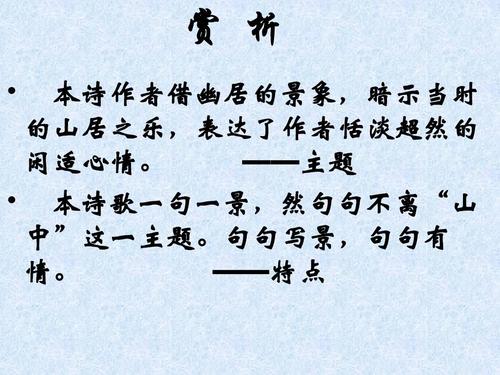 赏 析
• 本诗作者借幽居的景象，暗示当时
的山居之乐，表达了作者恬淡超然的
闲适心情。 ——主题
• 本诗歌一句一景，然句句不离“山
中”这一主题。句句写景，句句有
情。 ——特点